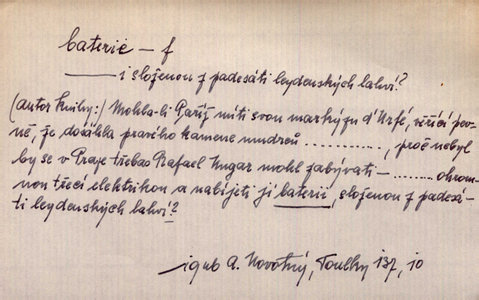 baterie – f
——— i složenou z padesáti leydenských lahví?
(autor knihy:) Mohla-li Paříž míti svou markýzu d'Urfé, věřící pev-
ně, že dosáhla pravého kamene mudrců ............, proč nebyl
by se v Praze třebas Rafael Ungar mohl zabývati – ........ ohrom-
nou třecí elektrikou a nabíjeti jí baterii, složenou z padesá-
ti leydenských lahví?
A. Novotný, Toulky 137, 10